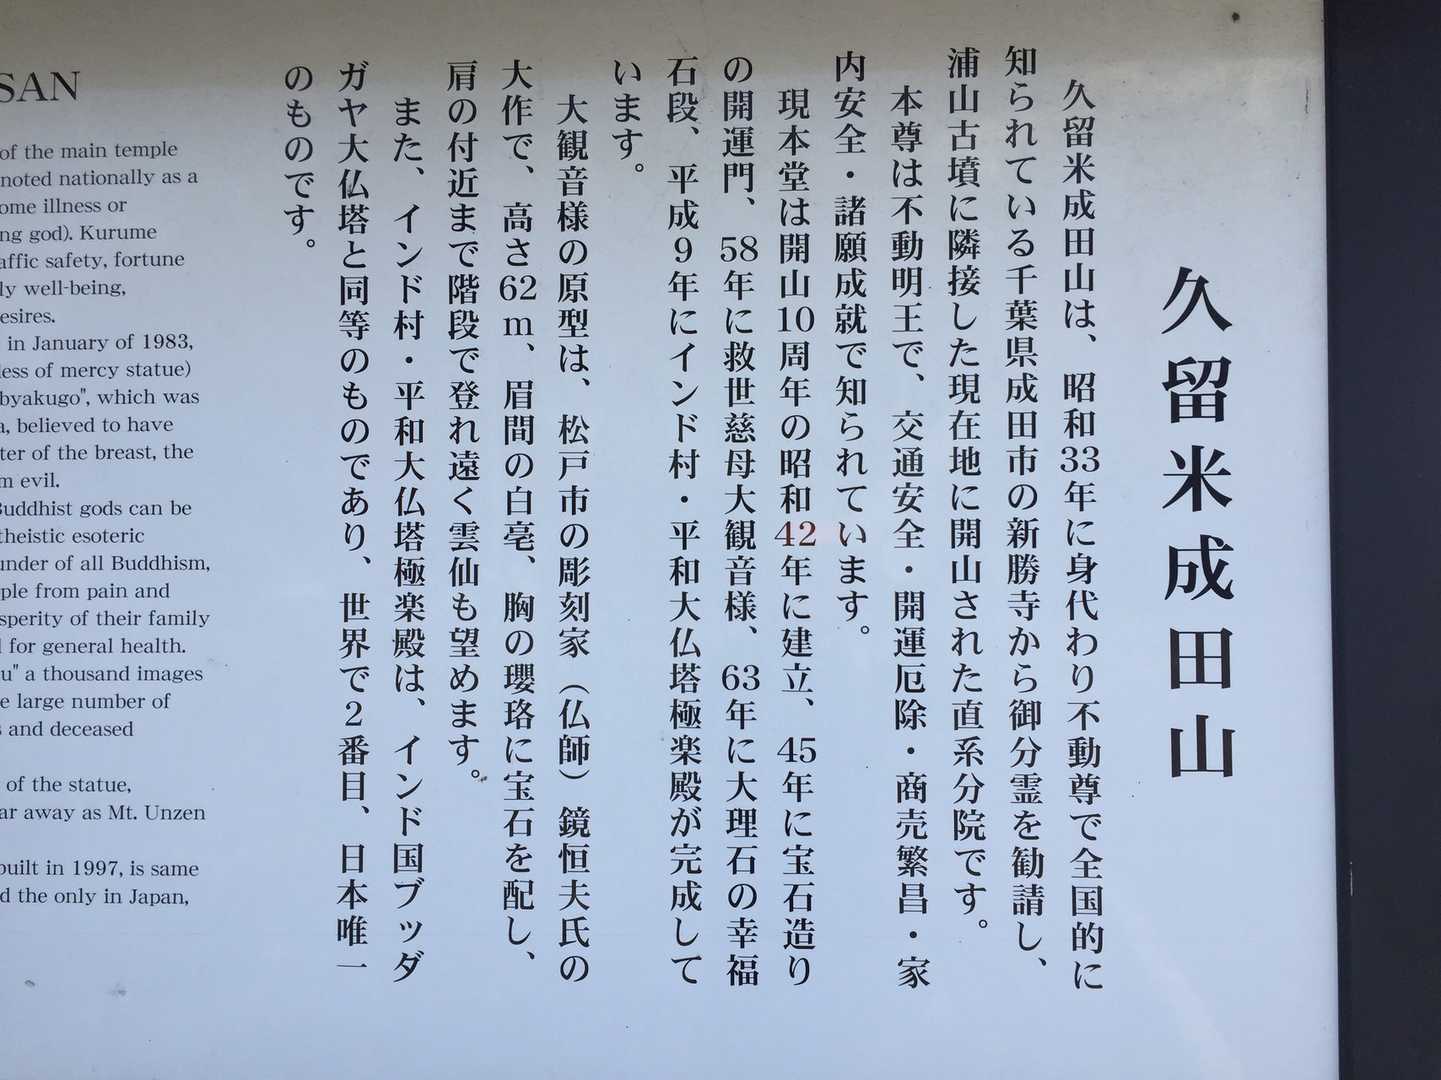 久留米成田山
久留米成田山は、昭和33年に身代わり不動尊で全国的に
知られている千葉県成田市の新勝寺から御分霊を勧請し、
浦山古墳に隣接した現在地に開山された直系分院です。
本尊は不動明王で、交通安全・開運厄除・商売繁昌・家
内安全・諸願成就で知られています。
現本堂は開山10周年の昭和42年に建立、45年に宝石造り
の開運門、58年に救世慈母大観音様、63年に大理石の幸福
石段、平成9年にインド村・平和大仏塔極楽殿が完成して
います。
大観音様の原型は、松戸市の彫刻家（仏師）鏡恒夫氏の
大作で、高さ62m、眉間の白毫、胸の瓔珞に宝石を配し、
肩の付近まで階段で登れ遠く雲仙も望めます。
また、インド村・平和大仏塔極楽殿は、インド国ブッダ
ガヤ大仏塔と同等のものであり、世界で2番目、日本唯一
のものです。
SAN
of the main temple
noted nationally as a
ome illness or
ng god). Kurume
affic safety, fortune
ly well-being,
esires.
in January of 1983,
less of mercy statue)
byakugo", which was
a, believed to have
ter of the breast, the
m evil.
Buddhist gods can be
theistic esoteric
under of all Buddhism,
ple from pain and
sperity of their family
l for general health.
u" a thousand images
e large number of
s and deceased
of the statue,
ar away as Mt. Unzen
built in 1997, is same
d the only in Japan,